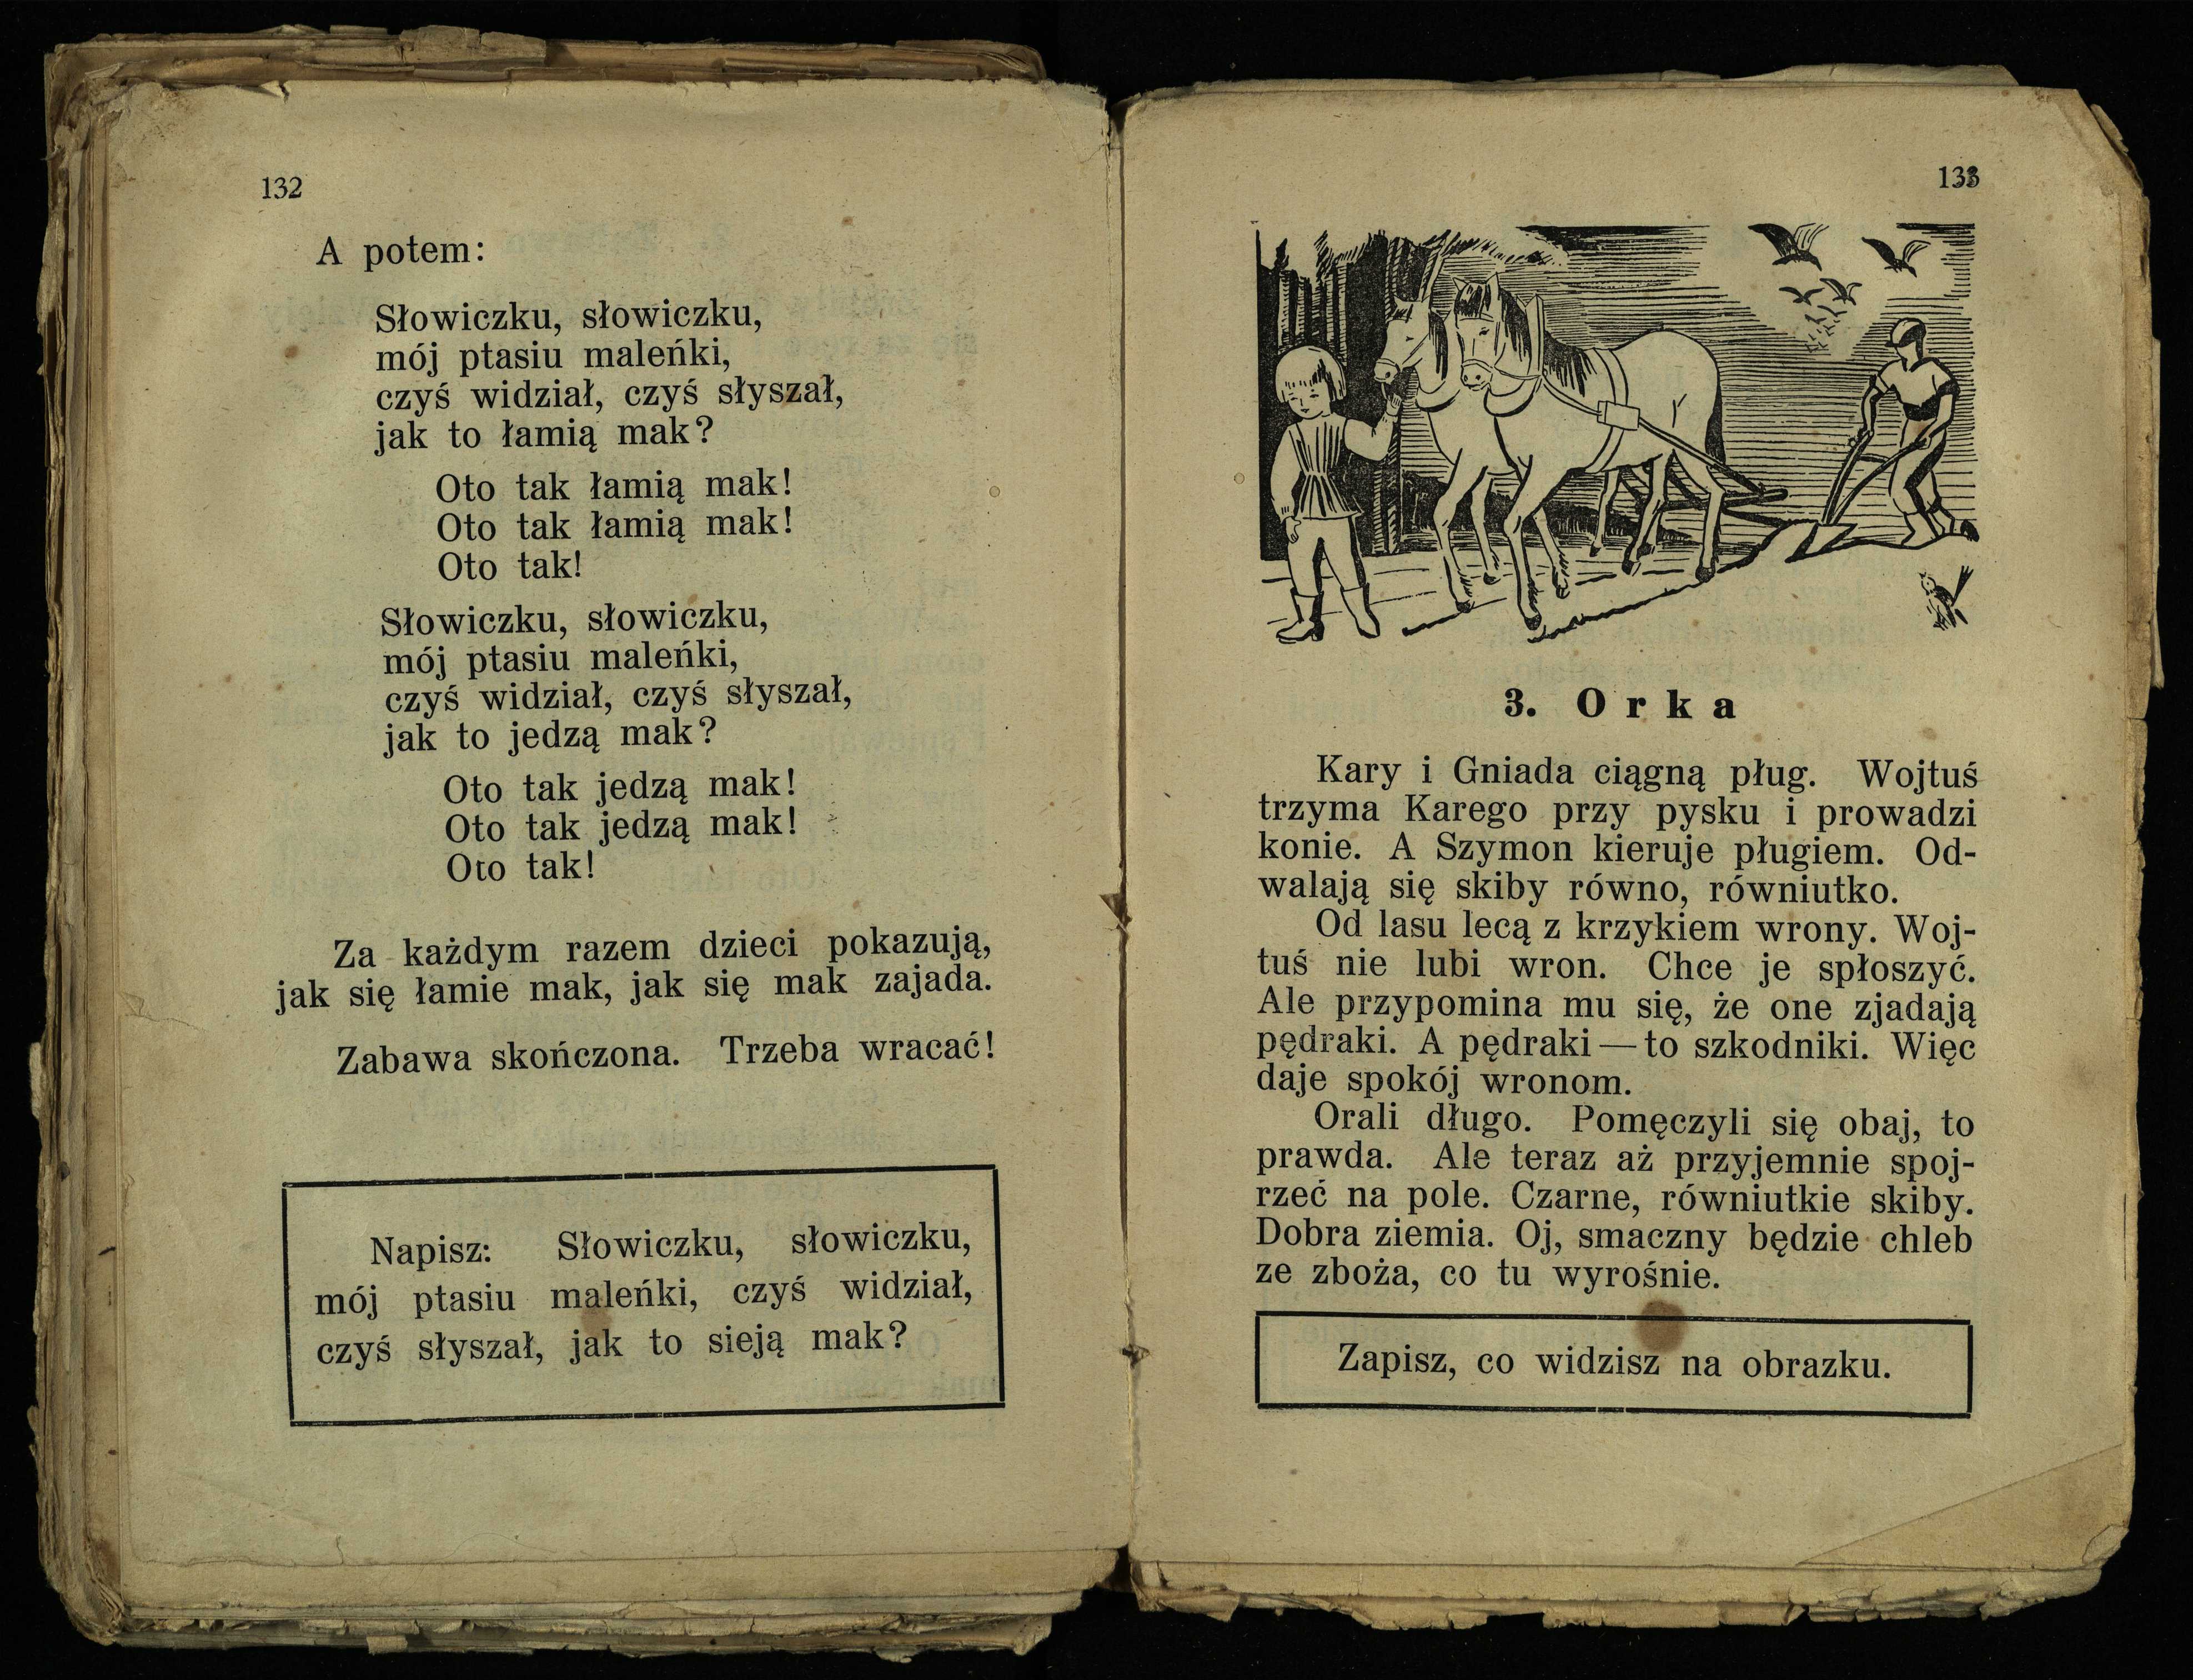 132
A potem:
Słowiczku, słowiczku,
mój ptasiu maleńki,
czyś widział, czyś słyszał,
jak to łamią mak?
Oto tak łamią mak!
Oto tak łamią mak!
Oto tak!
Słowiczku, słowiczku,
mój ptasiu maleńki,
czyś widział, czyś słyszał,
jak to jedzą mak?
Oto tak jedzą mak!
Oto tak jedzą mak!
Oto tak!
Za każdym razem dzieci pokazują,
jak się łamie mak, jak się mak zajada.
Zabawa skończona. Trzeba wracać!
Napisz: Słowiczku, słowiczku,
mój ptasiu maleńki, czyś widział,
czyś słyszał, jak to sieją mak?
133
3. Orka
Kary i Gniada ciągną pług. Wojtuś
trzyma Karego przy pysku i prowadzi
konie. A Szymon kieruje pługiem. Od-
walają się skiby równo, równiutko.
Od lasu lecą z krzykiem wrony. Woj-
tuś nie lubi wron. Chce je spłoszyć.
Ale przypomina mu się, że one zjadają
pędraki. A pędraki — to szkodniki. Więc
daje spokój wronom.
Orali długo. Pomęczyli się obaj, to
prawda. Ale teraz aż przyjemnie spoj-
rzeć na pole. Czarne, równiutkie skiby.
Dobra ziemia. Oj, smaczny będzie chleb
ze zboża, co tu wyrośnie.
Zapisz, co widzisz na obrazku.